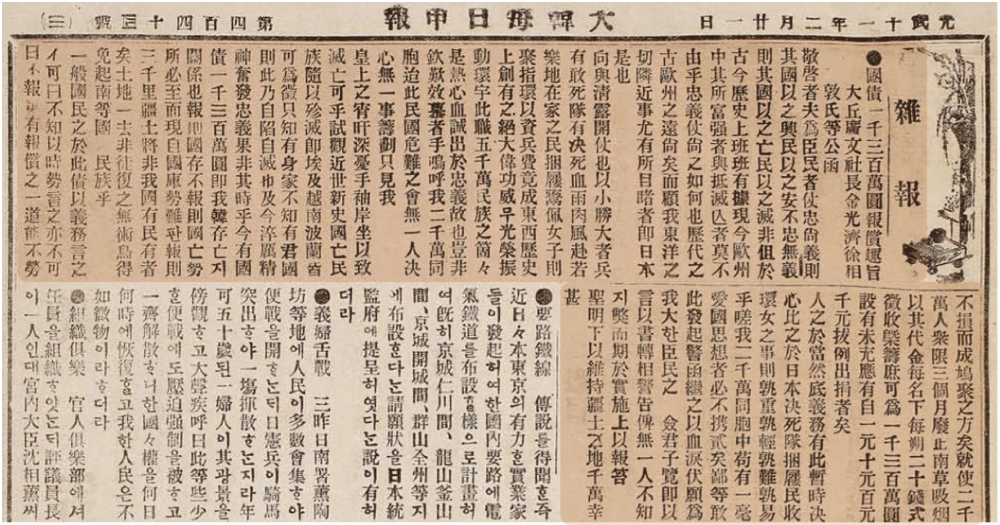 光武十一年二月廿一日
大韓每日申報
第四百四十三號
(三)
雜報
●國債一千三百萬圓報償趣旨
大丘廣文社長金光濟徐相
敦氏等公函
敬啓者夫爲臣民者仗忠尙義則
其國以之興民以之安不忠無義
則其國以之亡民以之滅非但於
古今歷史上班班有據現今歐州
中其所富强者與抵滅亾者莫不
由乎忠義仗尙之如何也歷代之
古歐州之遠尙矣而顧我東洋之
切隣近事尤有所目睹者卽日本
是也
向與淸露開仗也以小勝大者兵
有敢死隊有决死血雨肉風赴若
樂地在家之民捆屨鬻佩女子則
聚指環以資兵費竟成東西歷史
上創有之絕大偉功威무光榮振
動環宇此職五千萬民族之箇々
是熱心血誠出於忠義故也豈非
欽歎效摹者乎嗚呼我二千萬同
胞迨此民國危難之會無一人決
心無一事籌劃只見我
皇上之宵旰深憂乎袖岸坐以致
滅亡可乎試觀近世新史國亡民
族隨以殄滅卽埃及越南波蘭皆
可爲徵只知有身家不知有君國
則此乃自陷自滅也及今淬厲精
神奮發忠義果非其時乎今有國
債一千三百萬圓卽我韓存亡지
關係也報則國存不報則國亡勢
所必至而現自國庫勢難판報則
三千里疆土將非我國有民有者
矣土地一去非徒復之無術烏得
免越南等國 民族乎
一般國民之於此債以義務言之
不可曰不知以時勢言之亦不可
曰不報 有報償之一道能不勞
不損而成鳩聚之方矣就使二千
萬人衆限三個月廢止南草吸烟
以其代金每名下每朔二十錢式
徵收槩籌庶可爲一千三百萬圓
設有未充應有自一元十元百元
千元拔例出捐者矣
人之於當然底義務有此暫時決
心比之於日本決死隊捆屨民收
環女之事則孰重孰輕孰難孰易
乎嗟我二千萬同胞中苟有一毫
愛國思想者必不携貳矣鄙等敢
此發起警函繼之以血淚伏願爲
我大한臣民之 僉君子覽卽以
言以書轉相警告俾無一人不知
지槩而期於實施上以報答
聖明下以維持疆土之地千萬幸
甚
●要路鐵線 傳說를得聞ᄒᆞᆫ즉
近日々本東京의有力ᄒᆞᆫ實業家
들이發起ᄒᆞ여한國內要路에電
氣鐵道를布設ᄒᆞᆯ樣으로計畫ᄒᆞ
여旣히京城仁川間、龍山釜山
間、京城開城間、群山全州等지
에布設ᄒᆞᆫ다ᄂᆞᆫ請願狀을日本統
監府에提呈ᄒᆞ엿다ᄂᆞᆫ說이有ᄒᆞ
더라
●義婦舌戰 三昨日南署薰陶
坊等地에人民이多數會集ᄒᆞ야
便戰을開ᄒᆞᄂᆞᆫ되日憲兵이騎馬
突出ᄒᆞ야一塲揮散ᄒᆞᄂᆞᆫ지라年
可五十歲된一婦人이其光景을
傍觀ᄒᆞ고大聲疾呼曰此等些少
ᄒᆞᆫ便戰에도壓迫强制을被ᄒᆞ고
一齊解散ᄒᆞ니한國々權을何日
何時에恢復ᄒᆞᆯ고我한人民은不
如微物이라ᄒᆞ더라
●組織俱樂 官人俱樂部에셔
任員을組織ᄒᆞ엿ᄂᆞᆫ되評議員長
이一人인대宮內大臣沈相薰씨